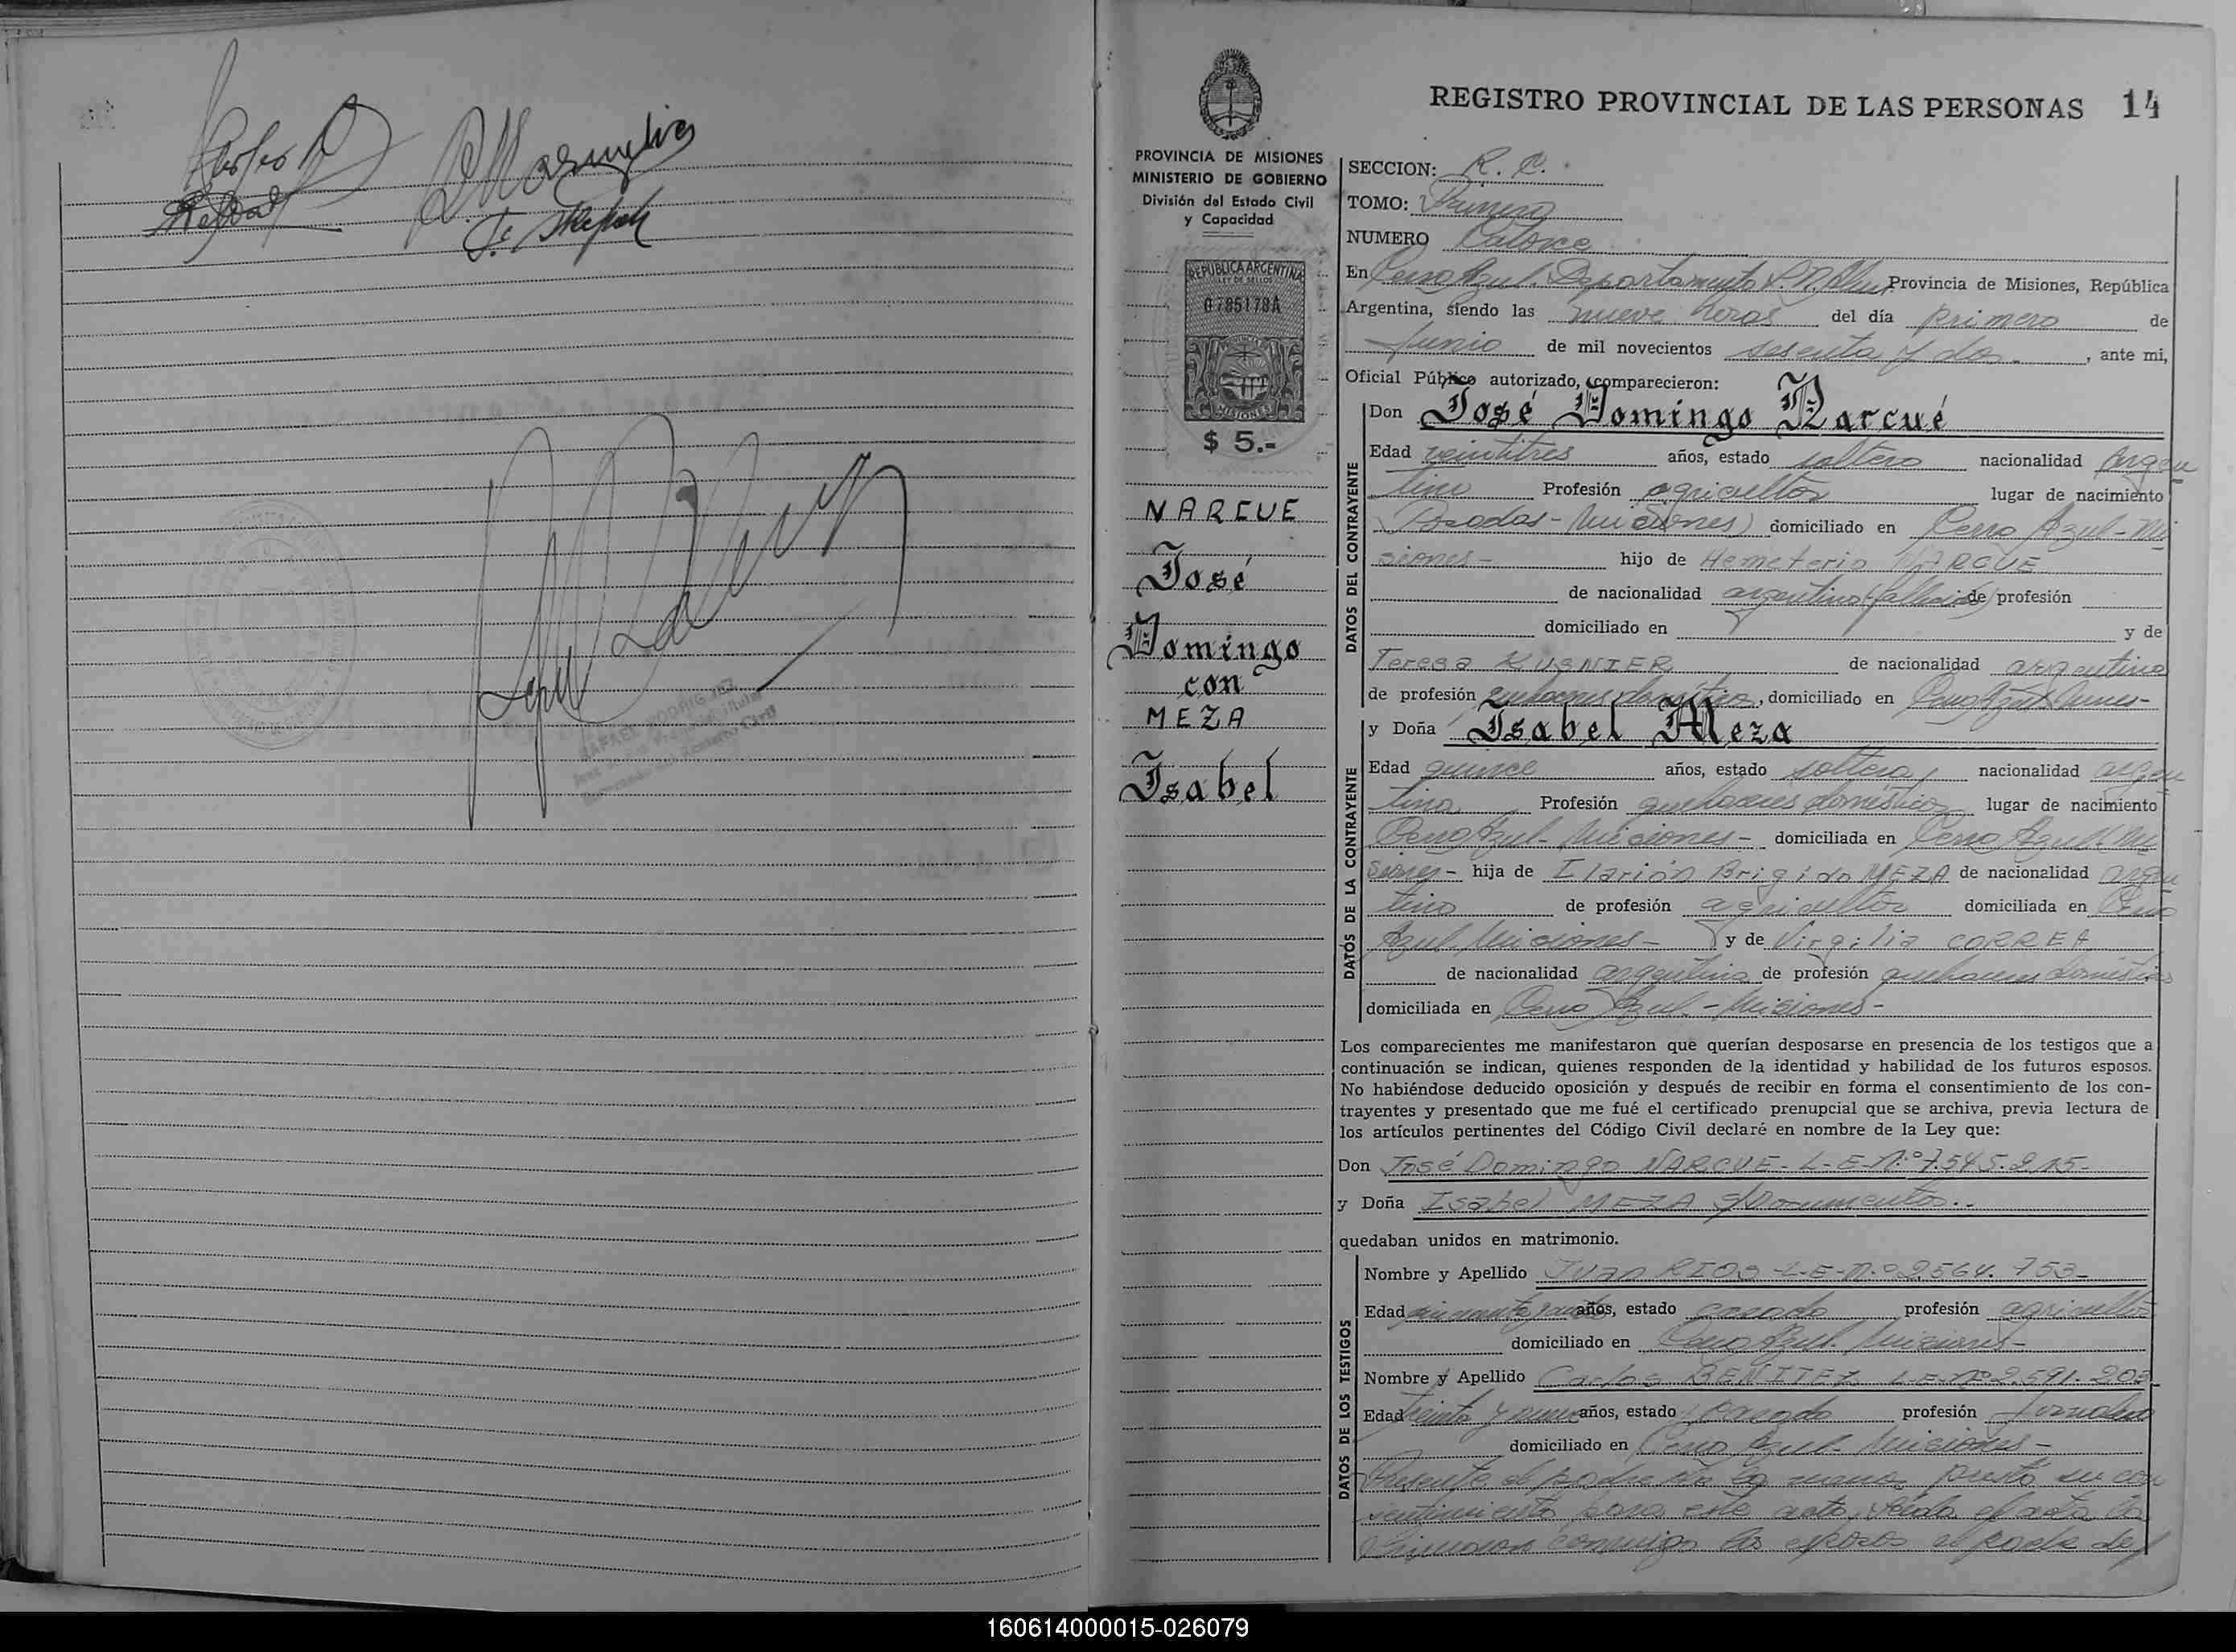 REGISTRO PROVINCIAL DE LAS PERSONAS 14
PROVINCIA DE MISIONES
MINISTERIO DE GOBIERNO
División del Estado Civil
y Capacidad
REPUBLICA ARGENTINA
LEY DE SELLOS
0785178A
PROVINCIA DE
MISIONES
$ 5.-
NARCUE
José
Domingo
con
MEZA
Isabel
SECCION: R. C.
TOMO: Primero
NUMERO Catorce
En Cerro Azul Departamento L. N. Alem Provincia de Misiones, República
Argentina, siendo las nueve horas del día primero de
Junio de mil novecientos sesenta y dos , ante mi,
Oficial Público autorizado, comparecieron:
DATOS DEL CONTRAYENTE
Don José Domingo Narcué
Edad veintitres años, estado soltero nacionalidad argen
tino Profesión agricultor lugar de nacimiento
Posadas - Misiones) domiciliado en Cerro Azul - Mi
siones - hijo de Hemeterio NARCUE
de nacionalidad argentino (fallecido) de profesión
domiciliado en y de
Teresa KUSNIER de nacionalidad argentina
de profesión quehaceres domésticos, domiciliado en Cerro Azul
DATOS DE LA CONTRAYENTE
y Doña Isabel Meza
Edad quince años, estado soltera, nacionalidad argen
tina Profesión quehaceres domésticos lugar de nacimiento
Cerro Azul - Misiones - domiciliada en Cerro Azul Mi
siones - hija de Ilarión Brigido MEZA de nacionalidad argen
tino de profesión agricultor domiciliada en Cerro
Azul Misiones - y de Virgilia CORREA
de nacionalidad argentina de profesión quehaceres domésticos
domiciliada en Cerro Azul - Misiones -
Los comparecientes me manifestaron que querían desposarse en presencia de los testigos que a
continuación se indican, quienes responden de la identidad y habilidad de los futuros esposos.
No habiéndose deducido oposición y después de recibir en forma el consentimiento de los con-
trayentes y presentado que me fué el certificado prenupcial que se archiva, previa lectura de
los artículos pertinentes del Código Civil declaré en nombre de la Ley que:
Don José Domingo NARCUE - L - E - N.º 7.545.215-
y Doña Isabel MEZA s/Documentos..
quedaban unidos en matrimonio.
DATOS DE LOS TESTIGOS
Nombre y Apellido Juan RIOS - L - E - N.º 2.564.753-
Edad cincuenta y años, estado casado profesión agricultor
domiciliado en Cerro Azul. Misiones -
Nombre y Apellido Carlos BENITEZ L.E.Nº 2.591.203-
Edad treinta y nueve años, estado casado profesión Jornalero
domiciliado en Cerro Azul - Misiones -
Presente el padre de la menor presta su con
sentimiento para este acto, leida el acta la
firmaron conmigo los esposos el padre de
160614000015-026079